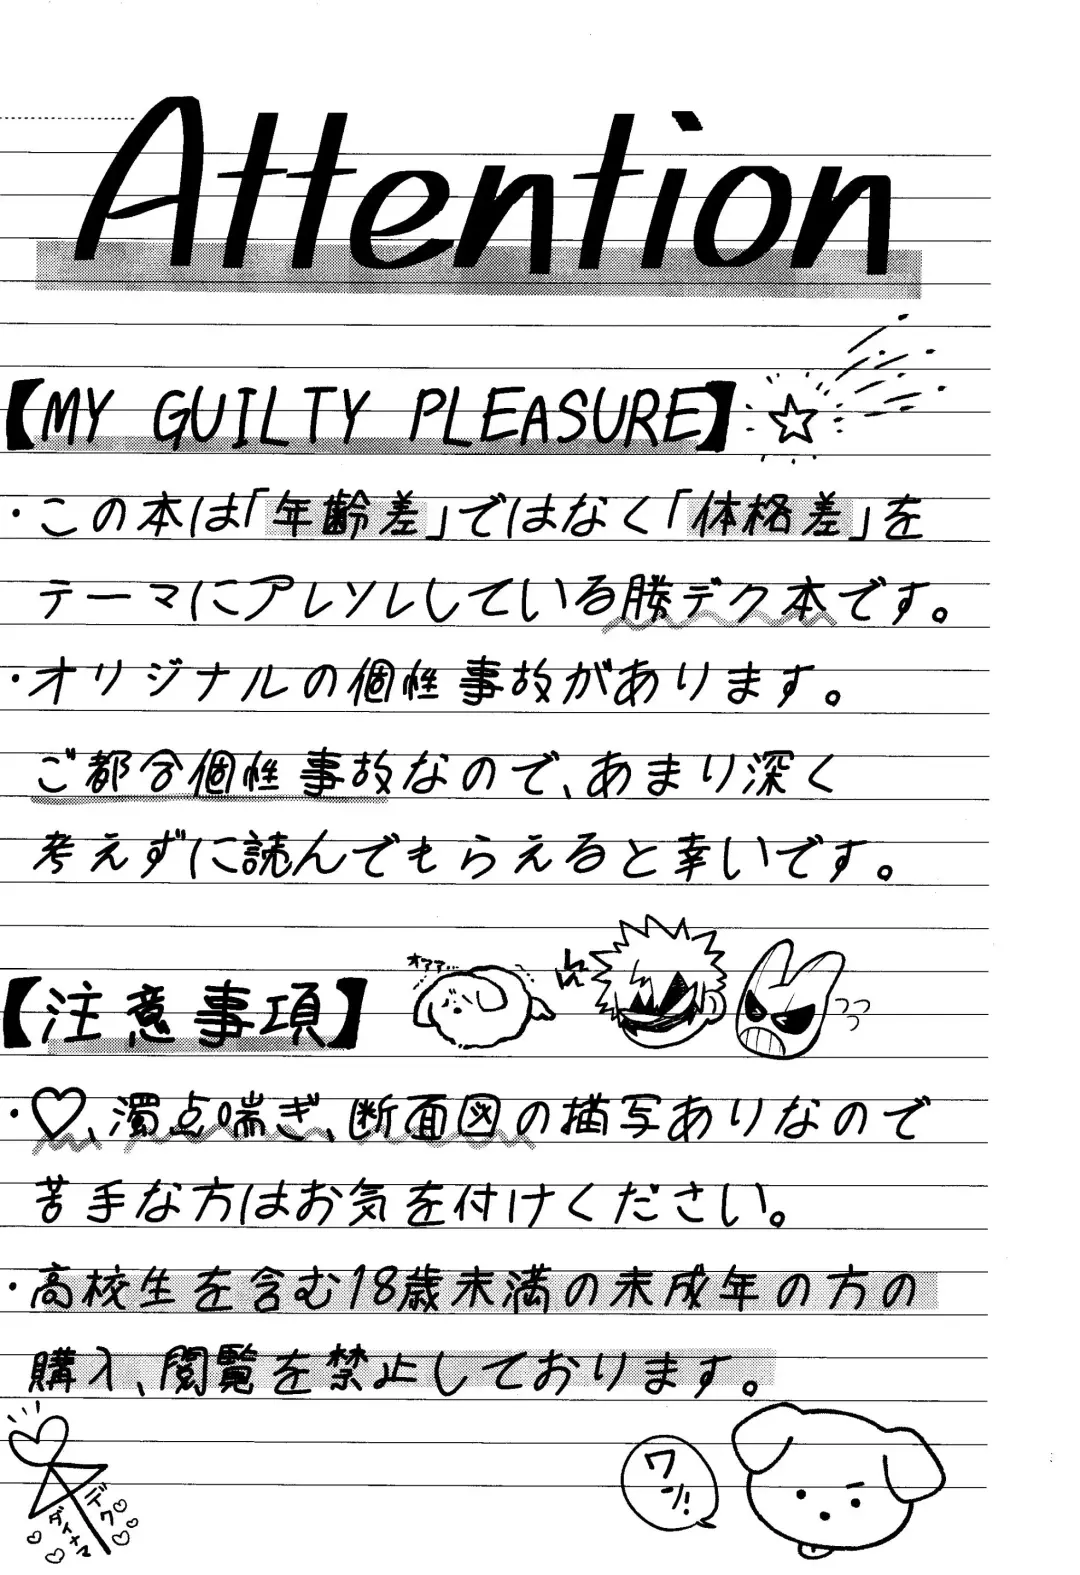 Attention
【MY GUILTY PLEASURE】
・この本は「年齢差」ではなく「体格差」を
テーマにアレソレしている勝デク本です。
・オリジナルの個性事故があります。
ご都合個性事故なので、あまり深く
考えずに読んでもらえると幸いです。
オアアァ…
【注意事項】
・♡、濁点喘ぎ、断面図の描写ありなので
苦手な方はお気を付けください。
・高校生を含む18歳未満の未成年の方の
購入、閲覧を禁止しております。
ワン!
デク
ダイナマ